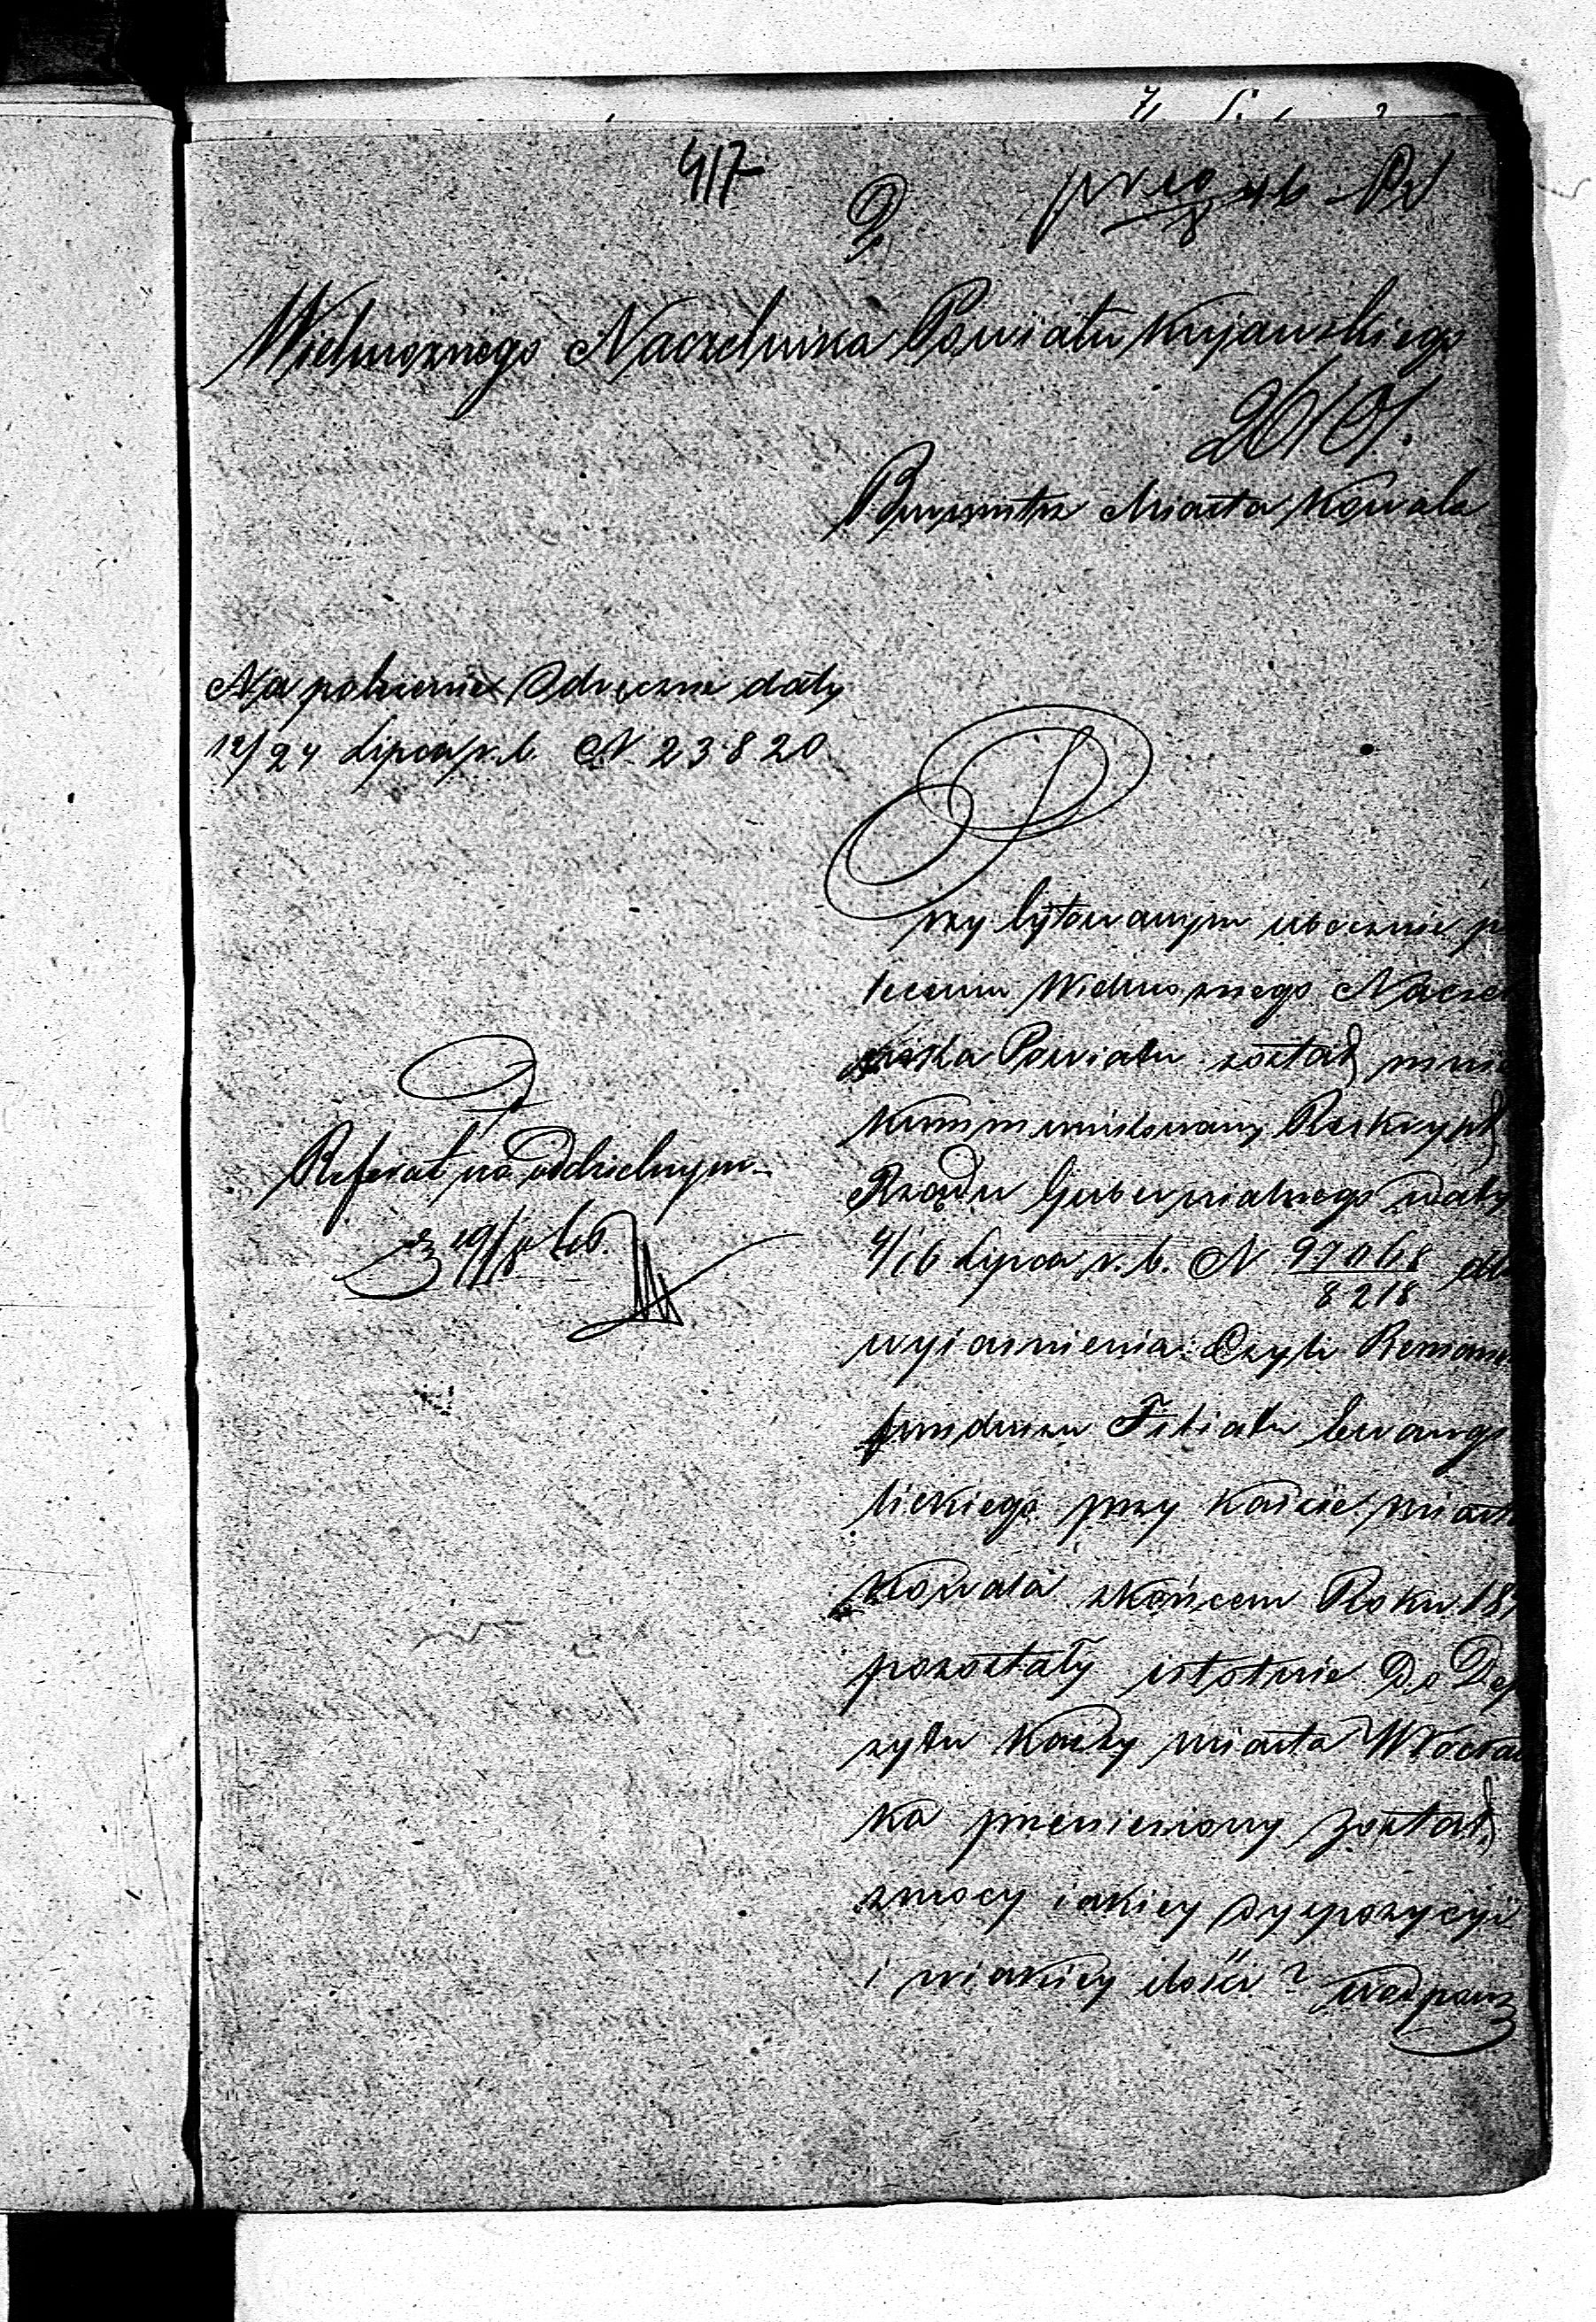 417
Wielmożnego Naczelnika Powiatu Kujawskiego
26101.
Burmistrz Miasta Kowala
Na polecenie Odręczne daty
12/24 Lipca r. b. N. 23820
Przy Cytowanym ubocznie po
leceniu Wielmożnego Naczel
nika Powiatu został mnie
kommunikowany Reskrypt
Rządu Gubernialnego daty
4/16 Lipca r. b. N 97068/8218 dla
wyiaśnienia: Czyli Remanent
funduszu Filiału Ewange
lickiego przy Kassie miasta
Kowala zkońcem Roku 184
pozostały istotnie Do Depo
zytu Kassy miasta Włocław
ka przeniesiony został,
zmocy iakiey dyspozycyi
i wiakiey ilości?
Referat na oddzielnym